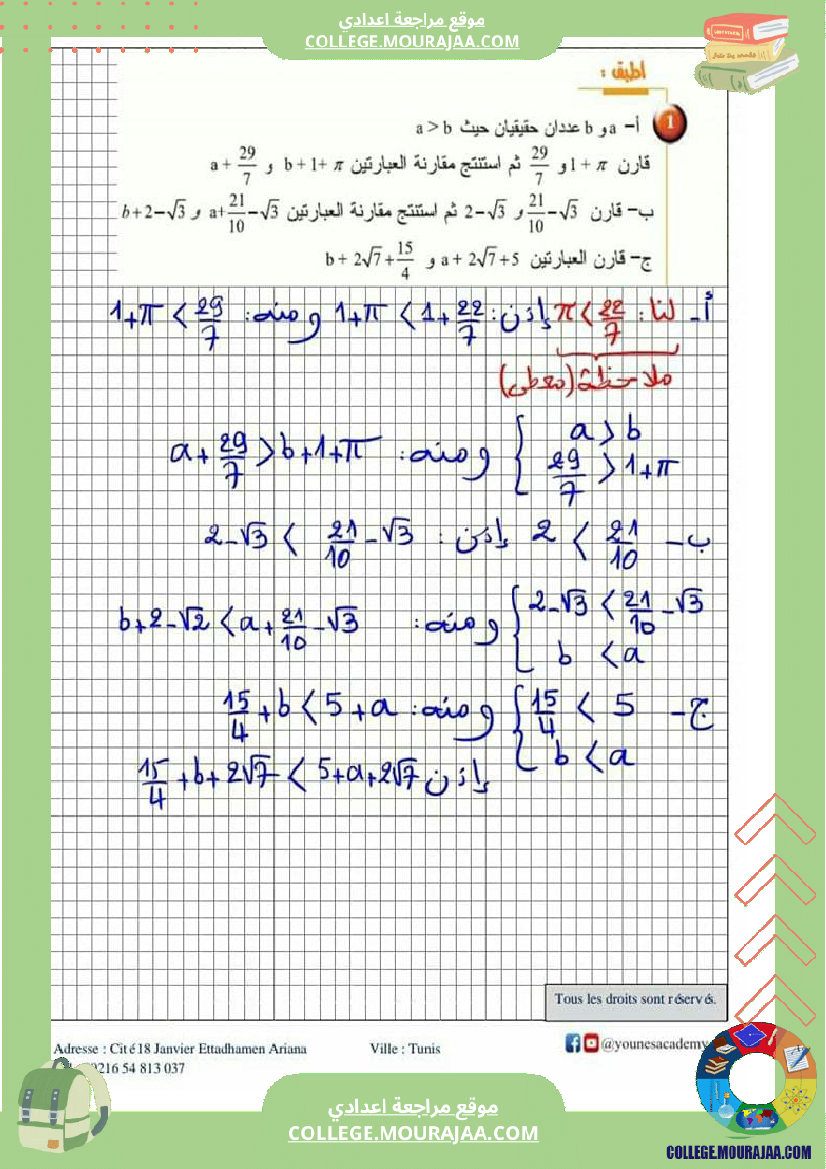 موقع مراجعة اعدادي
COLLEGE.MOURAJAA.COM
أطبق :
1
أ- a و b عددان حقيقيان حيث a > b
قارن 1 + π و 29/7 ثم استنتج مقارنة العبارتين b + 1+ π و a + 29/7
ب- قارن 21/10 - √3 و 2 - √3 ثم استنتج مقارنة العبارتين a + 21/10 - √3 و b + 2 - √3
ج- قارن العبارتين a + 2√7 + 5 و b + 2√7 + 15/4
أ- لنا : π < 22/7 إذن : 1+π < 1+22/7 ومنه : 1+π < 29/7
ملاحظة (معطى)
{ a > b
29/7 > 1+π ومنه : a + 29/7 > b+1+π
ب- 2 < 21/10 إذن : 2-√3 < 21/10 - √3
{ 2-√3 < 21/10 - √3
b < a ومنه : b+2-√2 < a+21/10 - √3
ج- { 15/4 < 5
b < a ومنه : 15/4 + b < 5 + a
إذن 15/4 + b + 2√7 < 5+a+2√7
Tous les droits sont réservés.
Adresse : Cité 18 Janvier Ettadhamen Ariana Ville : Tunis @younesacademy
0216 54 813 037
موقع مراجعة اعدادي
COLLEGE.MOURAJAA.COM
COLLEGE.MOURAJAA.COM